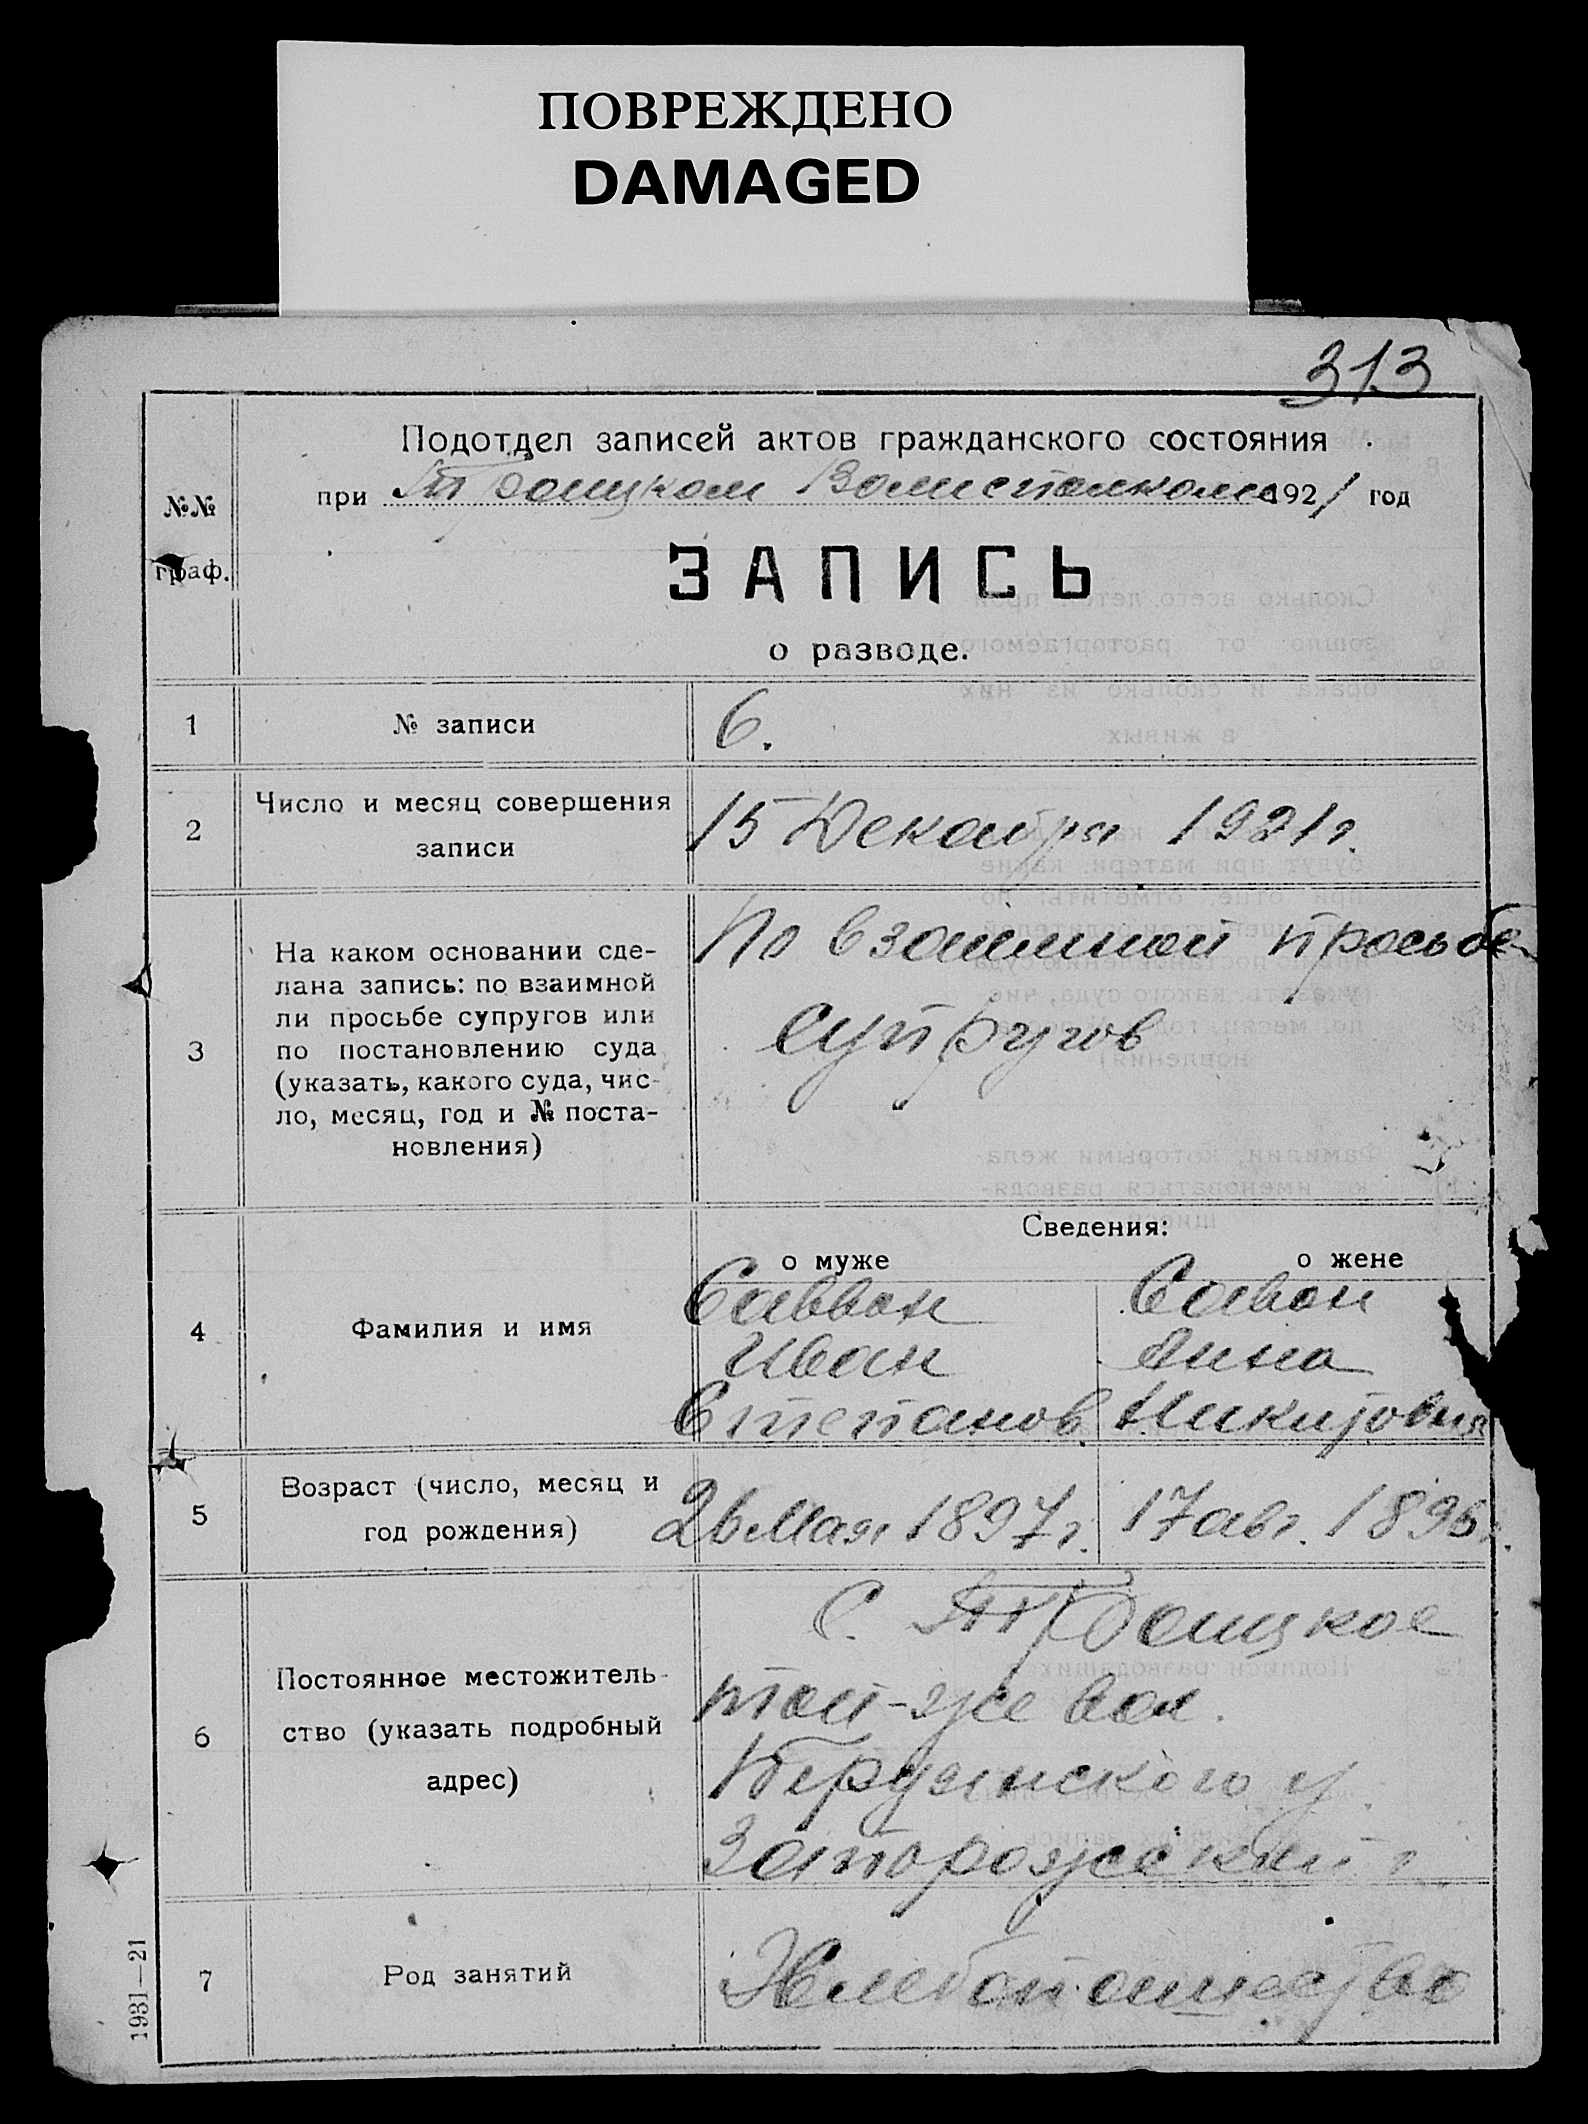 ПОВРЕЖДЕНО
DAMAGED
313
Подотдел записей актов гражданского состояния
№№
граф.
при Троицком Волисполкоме 1921 год
ЗАПИСЬ
о разводе.
1
№ записи
6.
2
Число и месяц совершения
записи
15 Декабря 1921 г.
3
На каком основании сде-
лана запись: по взаимной
ли просьбе супругов или
по постановлению суда
(указать, какого суда, чис-
ло, месяц, год и № поста-
новления)
По взаимной просьбе
супругов
Сведения:
о муже
о жене
4
Фамилия и имя
Саввон
Иван
Степанов
Савон
Анна
Никитовна
5
Возраст (число, месяц и
год рождения)
26 Мая 1897 г.
17 авг. 1896 г.
6
Постоянное местожитель-
ство (указать подробный
адрес)
С. Троицкое
той-же вол.
Бердянского у.
Запорожской г.
7
Род занятий
Хлебопашество
1931—21